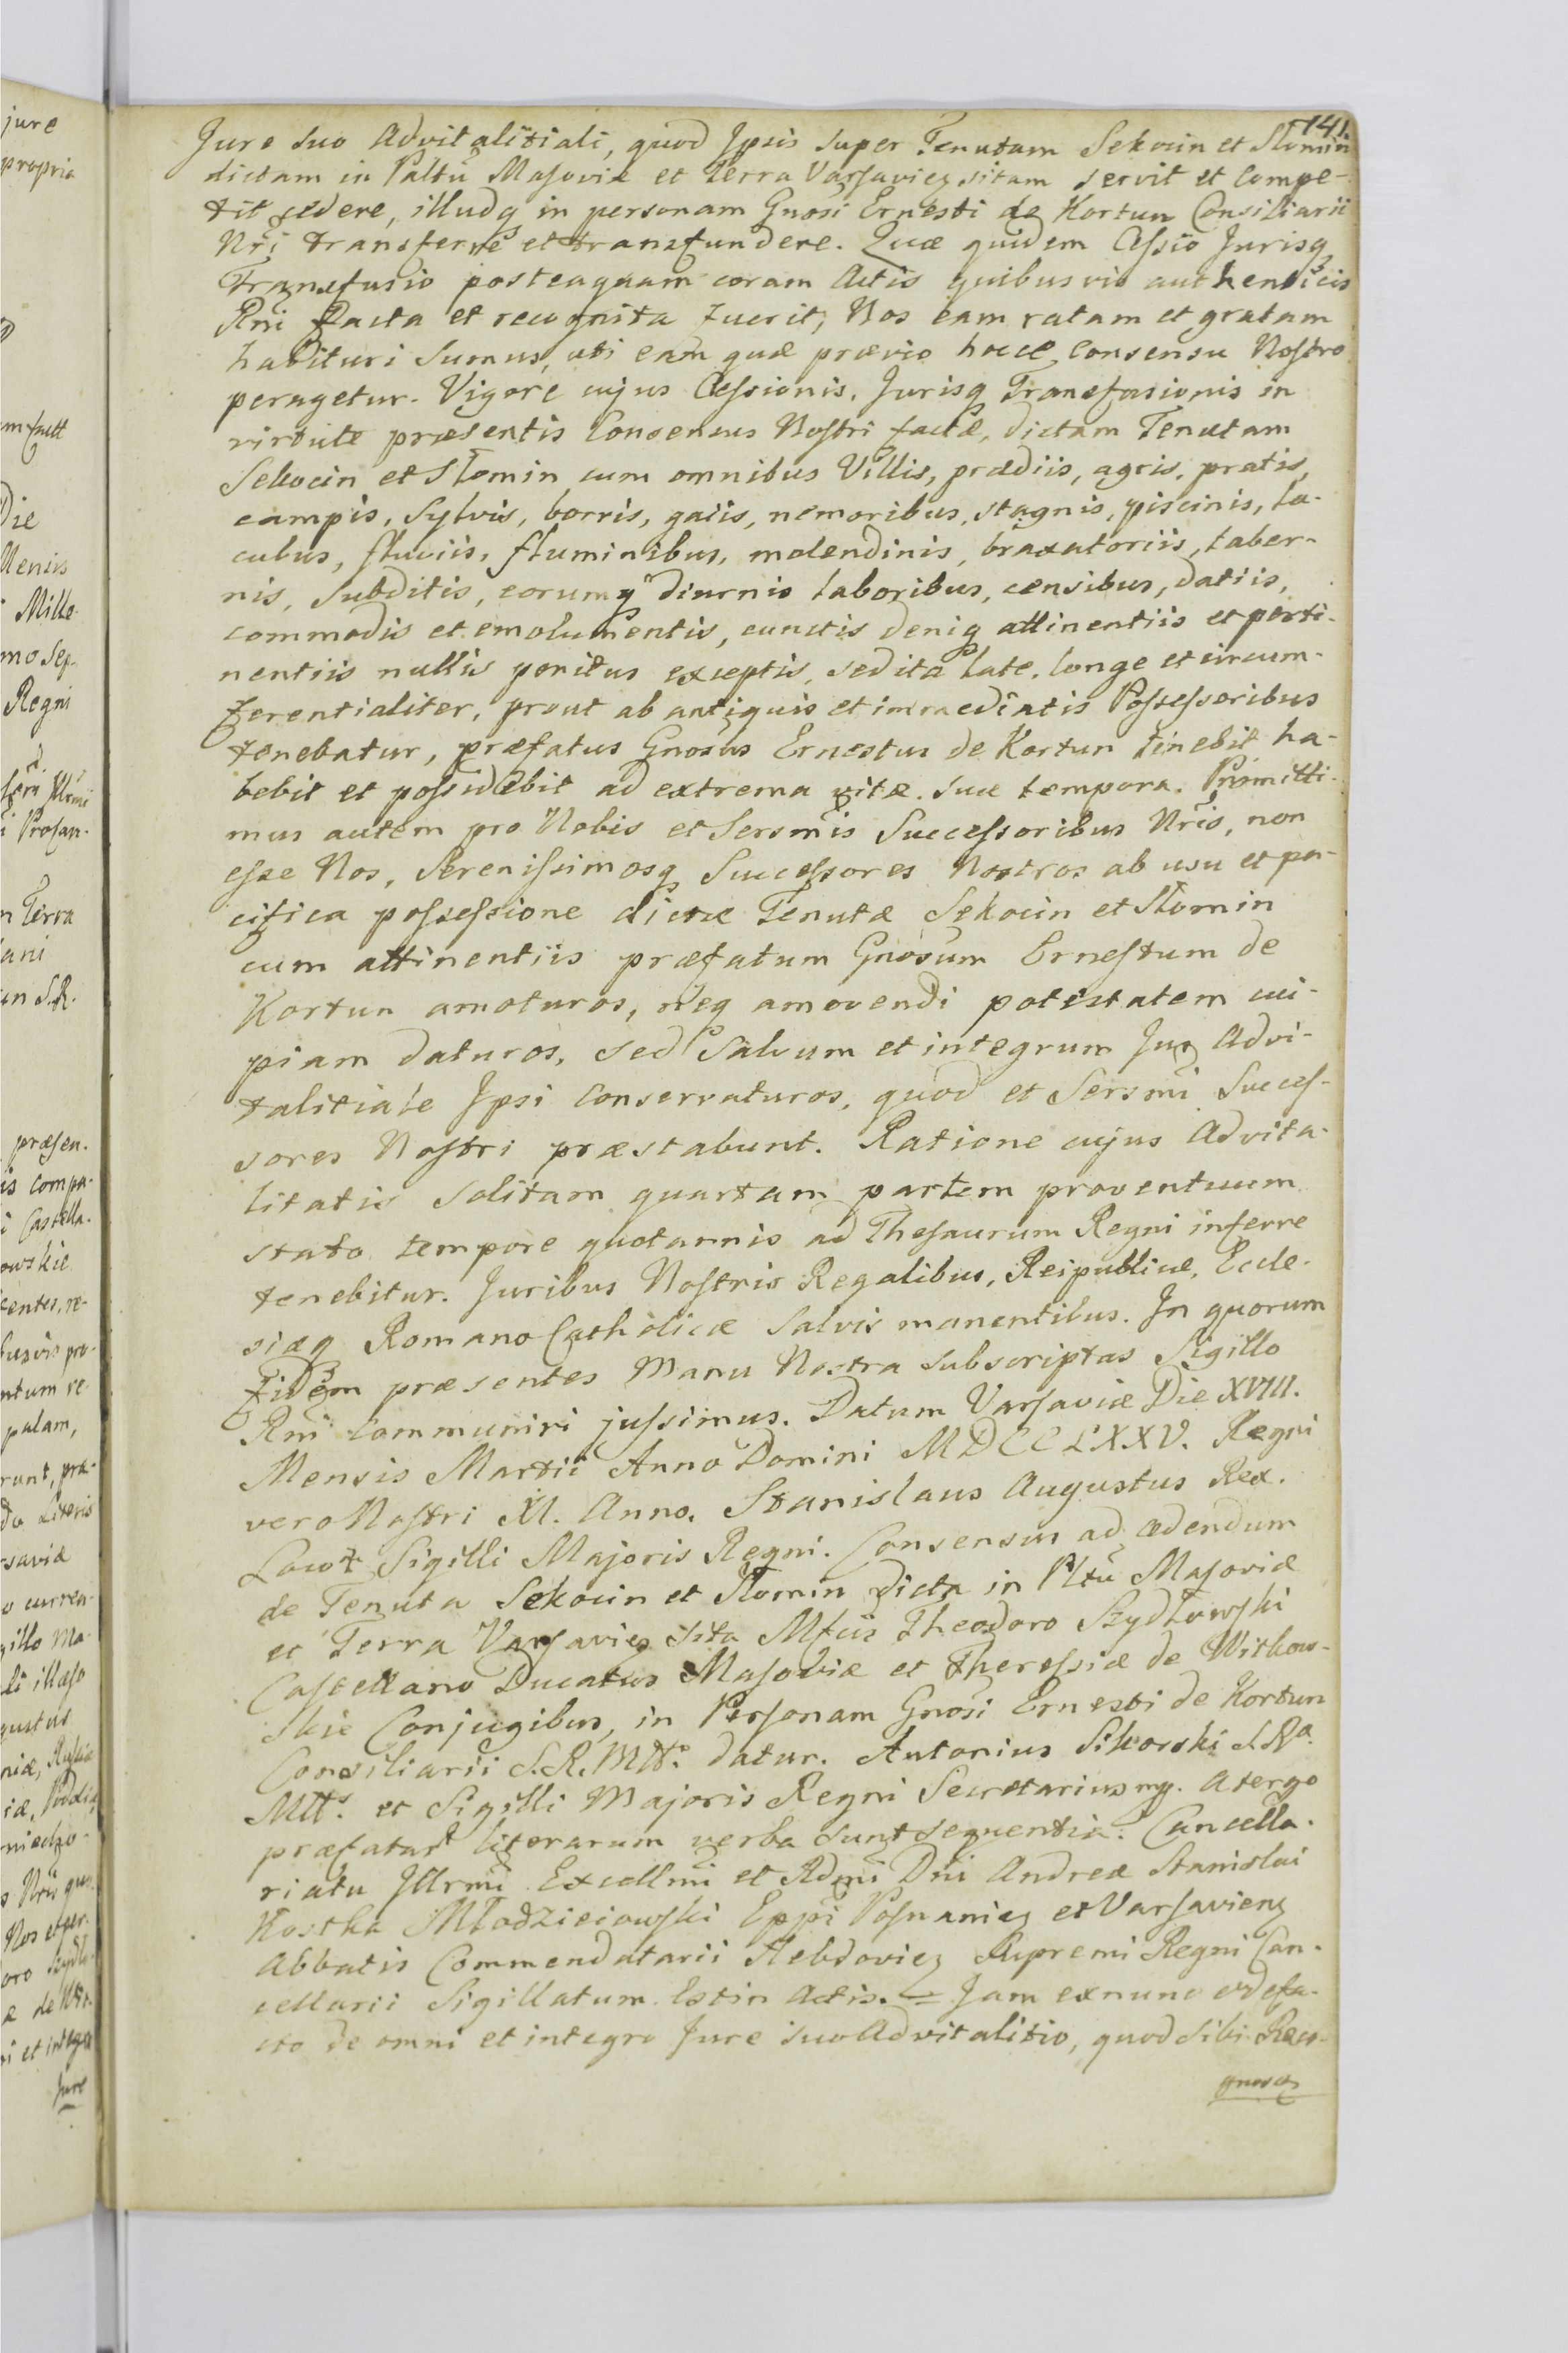 141.
Jure suo Advitalitiali, quod Ipsis super Tenutam Sekocin et Słomin
dictam in Paltũ Masoviæ et Terra Varsavieq sitam servit et compe-
tit cedere, illudq in personam Gnosi Ernesti de Kortun Consiliarii
Nri transferre et transfundere. Quæ quidem Cessio Jurisq
Transfusio posteaquam coram Actis quibusvis authenticis
Rni facta et recognita fuerit, Nos eam ratam et gratam
habituri sumus, uti eam quæ prævio hocce Consensu Nostro
peragetur. Vigore cujus Cessionis, Jurisq Transfusionis in
virtute præsentis Consensus Nostri factæ, dictam Tenutam
Sekocin et Słomin cum omnibus Villis, prædiis, agris, pratis,
campis, sylvis, borris, gaiis, nemoribus, stagnis, piscinis, la-
cubus, fluviis, fluminibus, molendinis, braxatoriis, taber-
nis, subditis, eorumq diurnis laboribus, censibus, datiis,
commodis et emolumentis, cunctis deniq attinentiis et perti-
nentiis nullis penitus exceptis, sed ita late, longe et circum-
ferentialiter, prout ab antiquis et immediatis Possessoribus
tenebatur, præfatus Gnosus Ernestus de Kortun tenebit ha-
bebit et possidebit ad extrema vitæ suæ tempora. Promitti-
mus autem pro Nobis et Sersmis Successoribus Nris, non
esse Nos, Serenissimosq Successores Nostros ab usu et pa-
cifica possessione dictæ Tenutæ Sekocin et Słomin
cum attinentiis præfatum Gnosum Ernestum de
Kortun amoturos, neq amovendi potestatem cui-
piam daturos, sed salvum et integrum Jus Advi-
talitiale Ipsi conservaturos, quod et Sersmi Succes-
sores Nostri præstabunt. Ratione cujus Advita-
litatis solitam quartam partem proventuum
stato tempore quotannis ad Thesaurum Regni inferre
tenebitur. Juribus Nostris Regalibus, Reipublicæ, Eccle-
siæq Romano Catholicæ salvis manentibus. In quorum
Fidem præsentes Manu Nostra subscriptas Sigillo
Rni communiri jussimus. Datum Varsaviæ Die XVIII.
Mensis Martii Anno Domini MDCCLXXV. Regni
vero Nostri XI. Anno. Stanislaus Augustus Rex.
Locus Sigilli Majoris Regni. Consensus ad cedendum
de Tenuta Sekocin et Słomin dicta in Pltũ Masoviæ
et Terra Varsavieq sita Mfcis Theodoro Szydłowski
Castellano Ducatus Masoviæ et Theressiæ de Witkow-
skie Conjugibus, in Personam Gnosi Ernesti de Kortun
Consiliarii S.R.Mtts. datur. Antonius Sikorski S.Ra.
Mtts. et Sigilli Majoris Regni Secretarius mp. A tergo
præfatar literarum verba sunt sequentia: Cancella-
riatu Illrmi Excellmi et Rdmi Dni Andreæ Stanislai
Kostka Młodzieiowski Eppi Posnanieq et Varsavienq
Abbatis Commendatarii Hebdovieq Supremi Regni Can-
cellarii Sigillatum. Est in Actis. = Jam ex nunc et de fa-
cto de omni et integro Jure suo Advitalitio, quod sibi Reco-
gnosceq